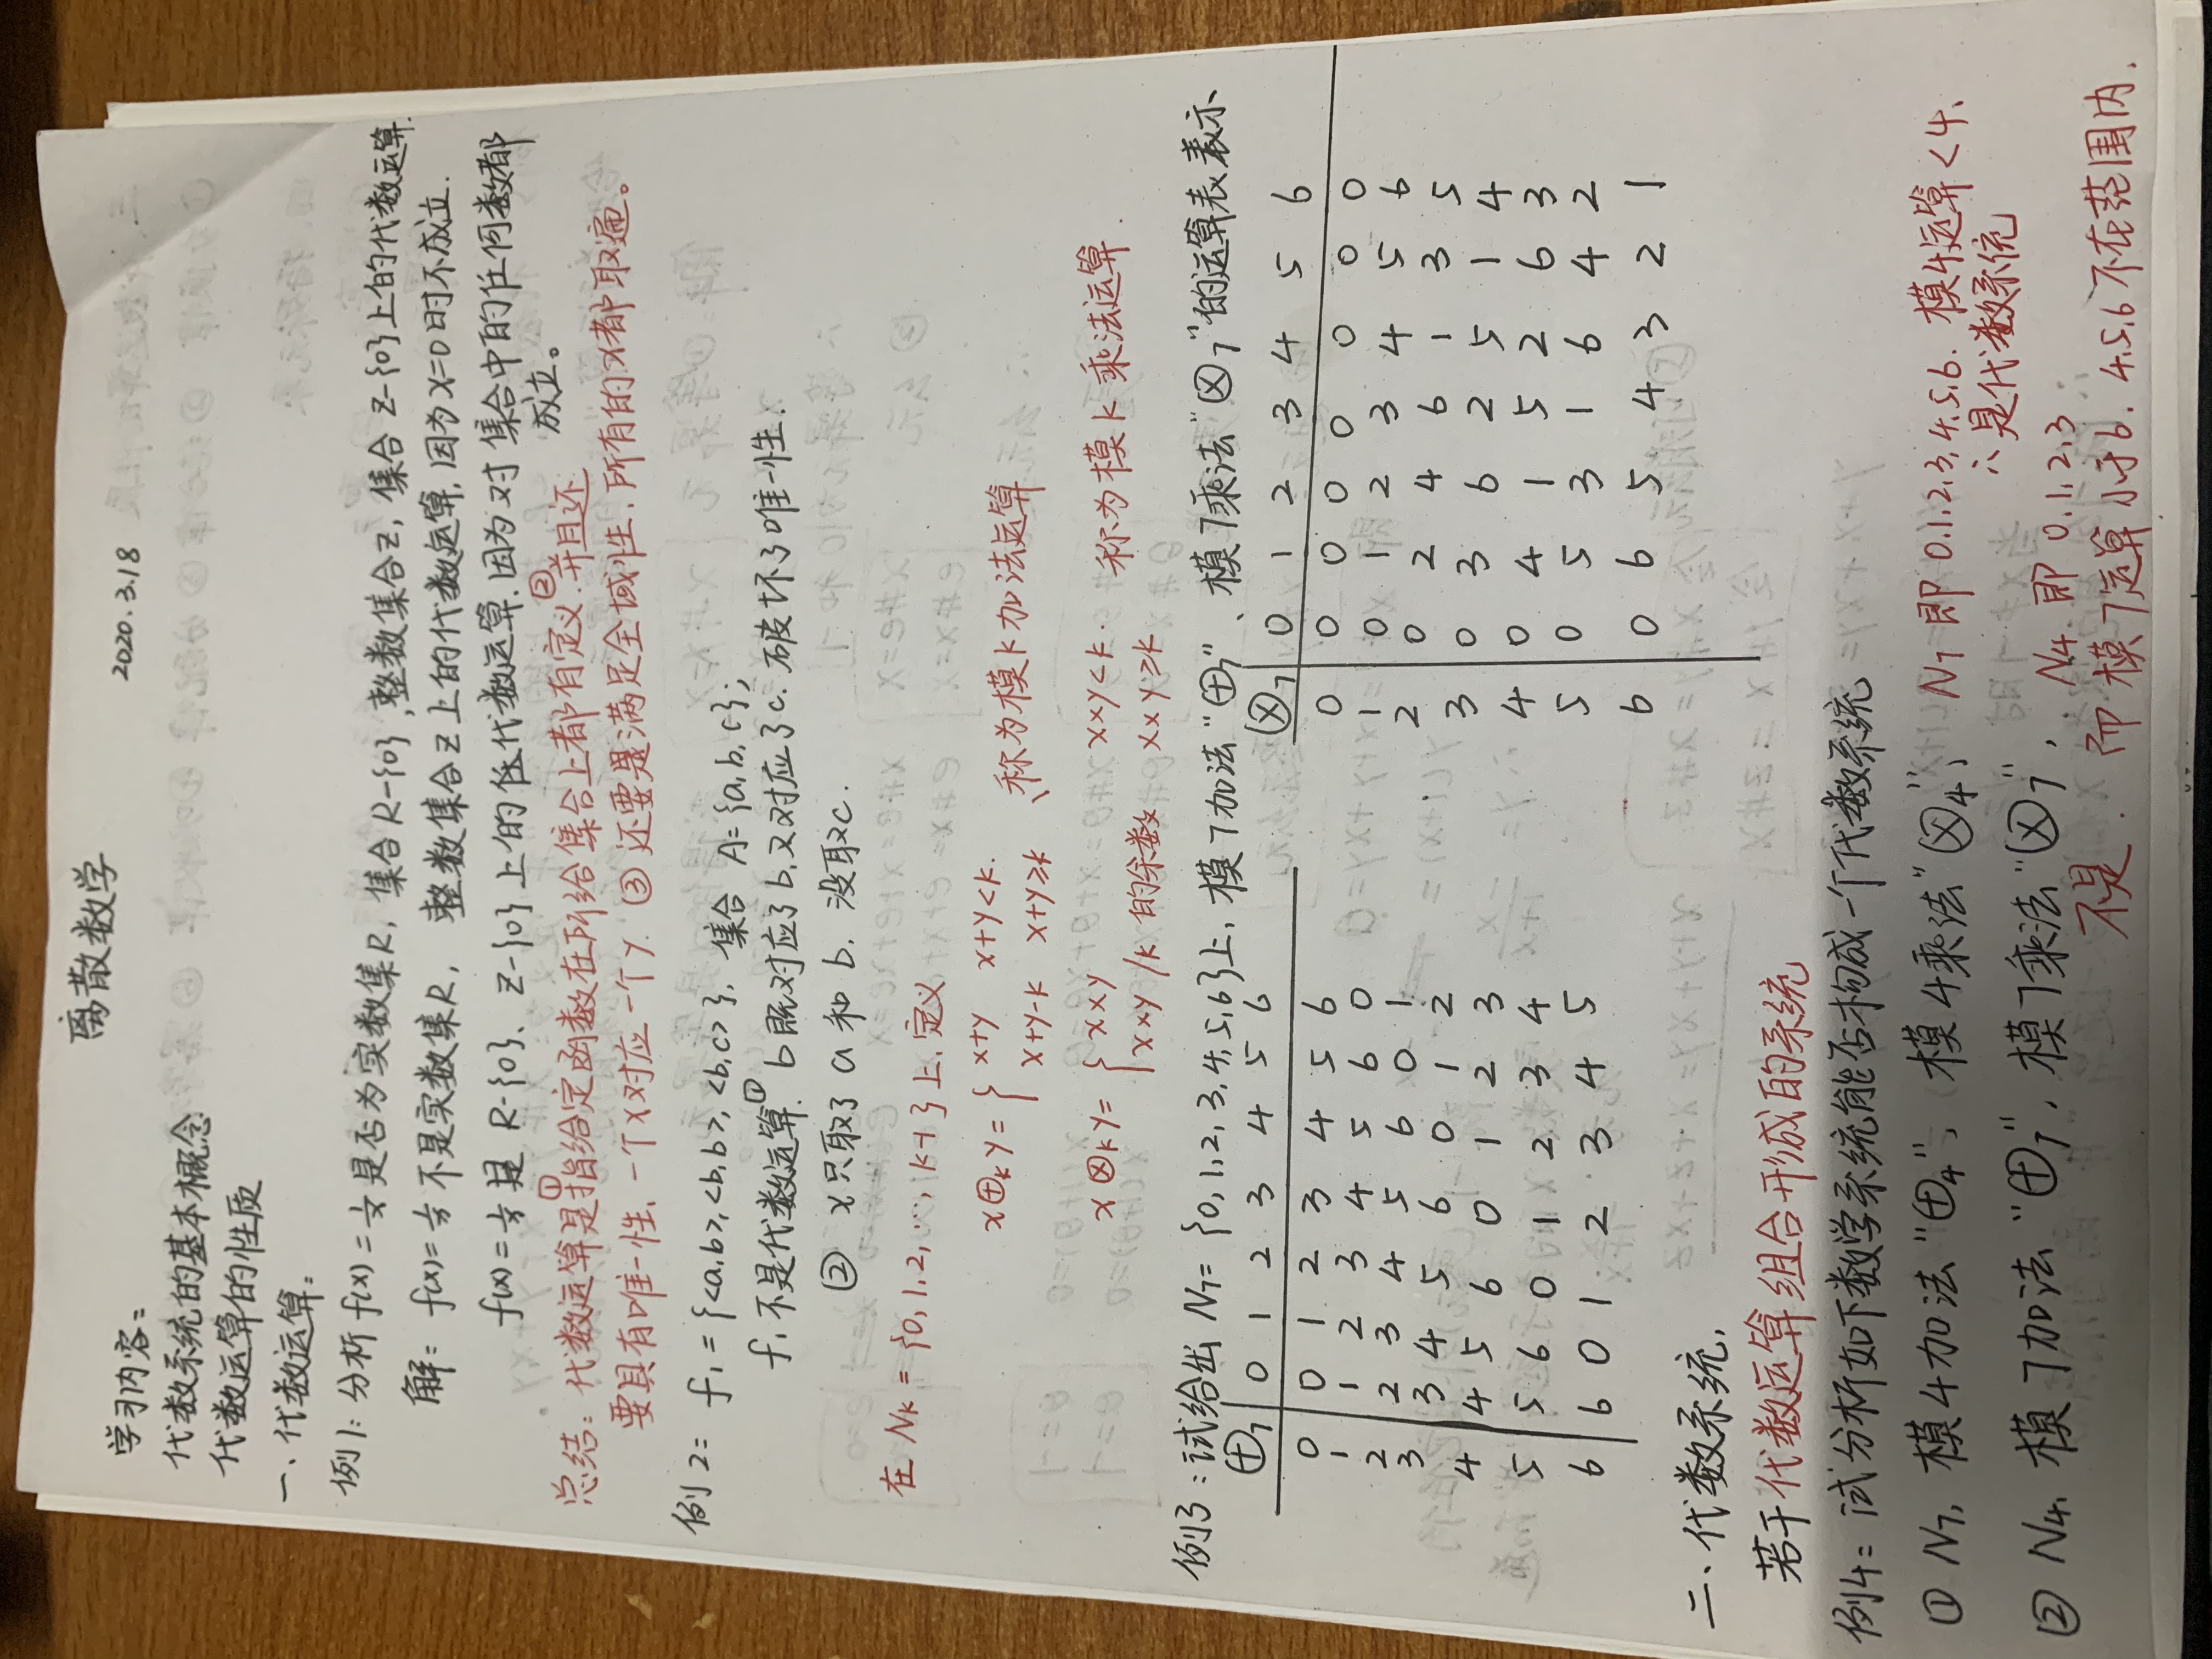 离散数学
2020.3.18
学习内容:
代数系统的基本概念
代数运算的性质
一、代数运算:
例1: 分析 f(x)=1/x 是否为实数集R, 集合 R-{0}, 整数集合Z, 集合 Z-{0}上的代数运算.
解: f(x)=1/x 不是实数集R, 整数集合Z上的代数运算, 因为 x=0时不成立.
f(x)=1/x 是 R-{0}、Z-{0}上的代数运算. 因为对集合中的任何数都
成立。
总结: 代数运算是①指给定函数在所给集合上都有定义. ②并且还
要具有唯一性, 一个x对应一个y. ③还要是满足全域性, 所有的x都取遍。
例2: f₁={<a,b>,<b,b>,<b,c>}, 集合 A={a,b,c};
f₁不是代数运算. ①b既对应了b, 又对应了c. 破坏了唯一性.
② x只取了 a 和 b, 没取c.
在 Nk={0,1,2,…,k-1}上, 定义
x⊕ky={ x+y x+y<k.
x+y-k x+y≥k 、称为模k加法运算
x⊗ky={ x×y x×y<k. 称为模k乘法运算.
x×y/k 的余数 x×y≥k
例3: 试给出 N₇={0,1,2,3,4,5,6}上, 模7加法"⊕₇"、模7乘法"⊗₇"的运算表表示
⊕₇ 0 1 2 3 4 5 6
0 0 1 2 3 4 5 6
1 1 2 3 4 5 6 0
2 2 3 4 5 6 0 1
3 3 4 5 6 0 1 2
4 4 5 6 0 1 2 3
5 5 6 0 1 2 3 4
6 6 0 1 2 3 4 5
⊗₇ 0 1 2 3 4 5 6
0 0 0 0 0 0 0 0
1 0 1 2 3 4 5 6
2 0 2 4 6 1 3 5
3 0 3 6 2 5 1 4
4 0 4 1 5 2 6 3
5 0 5 3 1 6 4 2
6 0 6 5 4 3 2 1
二、代数系统,
若干代数运算组合形成的系统
例4: 试分析如下数学系统能否构成一个代数系统
① N₇, 模4加法"⊕₄", 模4乘法"⊗₄", N₇即 0,1,2,3,4,5,6. 模4运算<4,
∴是代数系统
② N₄, 模7加法"⊕₇", 模7乘法"⊗₇", N₄ 即 0,1,2,3
不是. 而模7运算小于6. 4,5,6不在范围内.